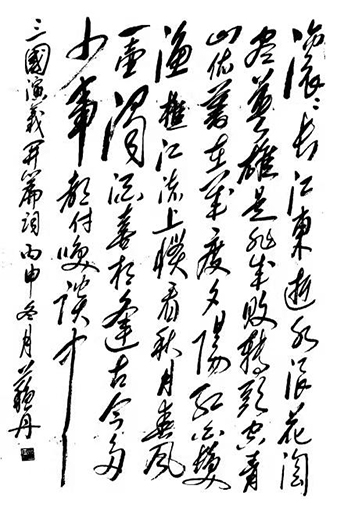 滚〻长江東逝水浪花淘
尽英雄是非成败轉頭空青
山依舊在幾度夕陽红白髮
渔樵江渚上惯看秋月春风
一壶濁酒喜相逢古今多
少事都付笑谈中
三國演義開篇詞丙申冬月